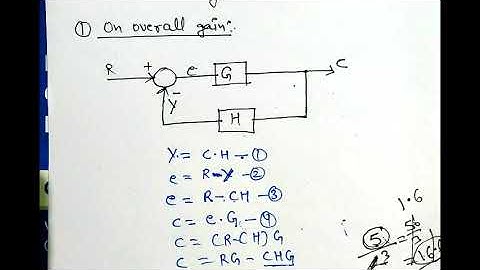 ① On overall gain:-
R + e G C
-
Y H
Y = C·H - ①
e = R-Y - ②
e = R-CH - ③
C = e·G - ④
C = (R-CH)G
C = RG - CHG
1.6
5